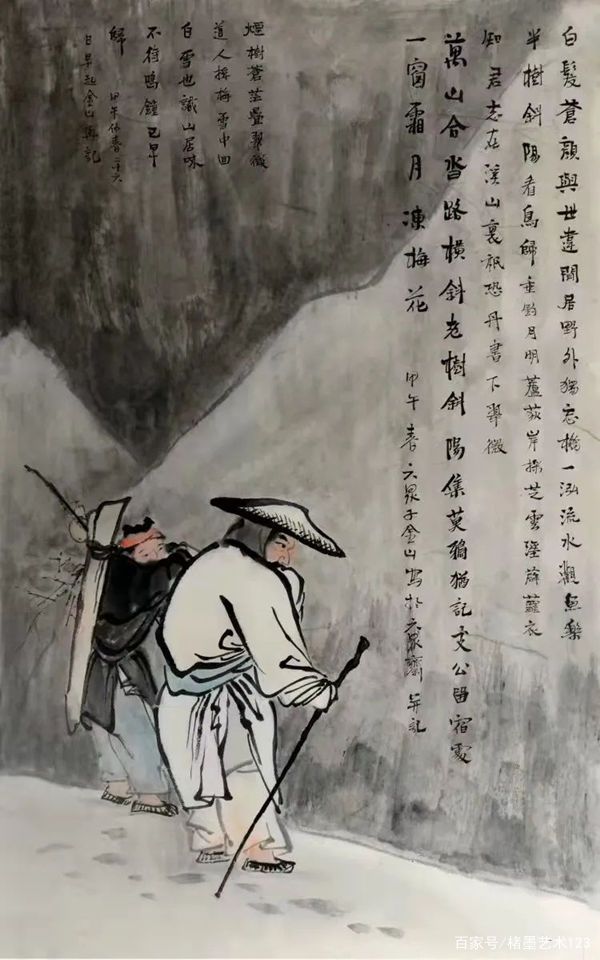 白髮蒼顏與世違閒居野外獨忘機一泓流水觀魚樂
半樹斜陽看鳥歸垂釣月明蘆荻岸採芝雲溼薜蘿衣
知君志在溪山裏祇恐丹書下翠微
萬山合沓路橫斜老樹斜陽集莫鴉猶記文公畱宿處
一窗霜月凍梅花 甲午春六泉子金山寫於六泉齋并記
煙樹蒼茫疊翠微
道人探梅雪中回
白雪也識山居味
不待鳴鐘已早
歸 甲午仲春二十六
日早起金山再記
百家号/楮墨艺术123